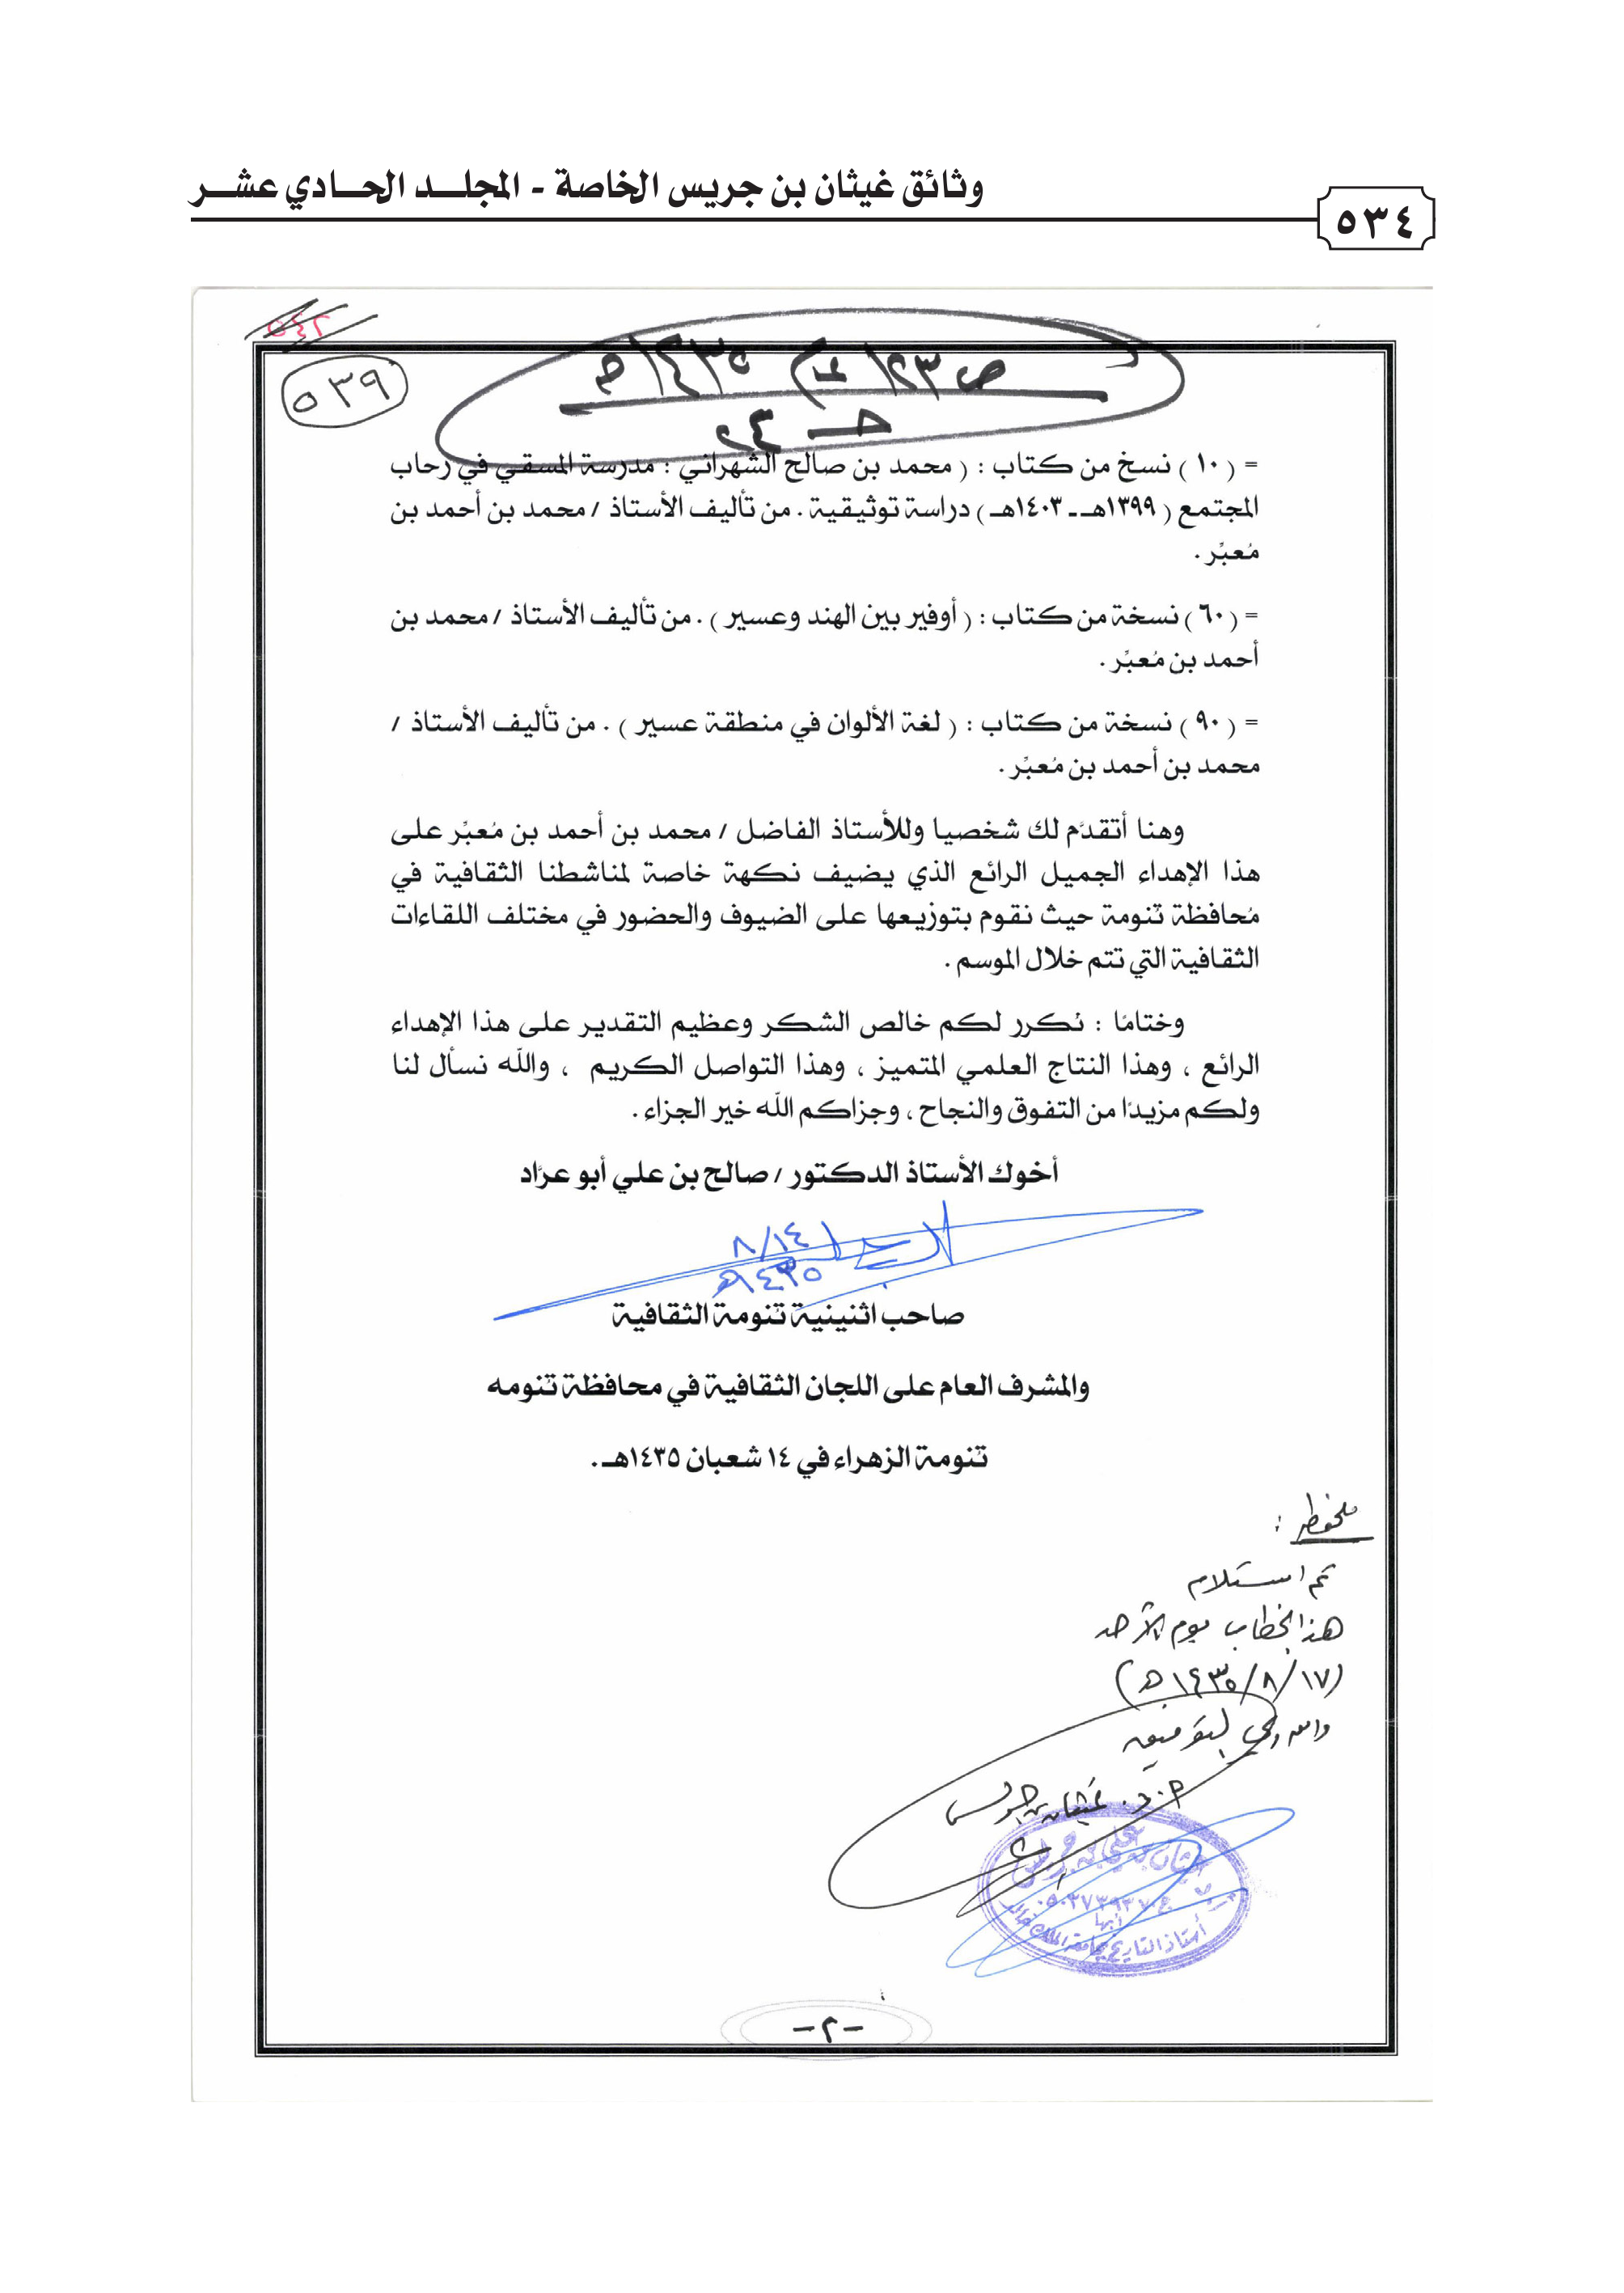 وثائق غيثان بن جريس الخاصة - المجلد الحادي عشر
٥٣٤
٥٤٢
٥٣٩
= (١٠) نسخ من كتاب : ( محمد بن صالح الشهراني : مدرسة المسقي في رحاب
المجتمع ( ١٣٩٩هـ ـ ١٤٠٣هـ ) دراسة توثيقية . من تأليف الأستاذ / محمد بن أحمد بن
مُعبِّر .
= (٦٠) نسخة من كتاب : ( أوفير بين الهند وعسير ) . من تأليف الأستاذ / محمد بن
أحمد بن مُعبِّر .
= (٩٠) نسخة من كتاب : ( لغة الألوان في منطقة عسير ) . من تأليف الأستاذ /
محمد بن أحمد بن مُعبِّر .
وهنا أتقدَّم لك شخصيا وللأستاذ الفاضل / محمد بن أحمد بن مُعبِّر على
هذا الإهداء الجميل الرائع الذي يضيف نكهة خاصة لمناشطنا الثقافية في
مُحافظة تنومة حيث نقوم بتوزيعها على الضيوف والحضور في مختلف اللقاءات
الثقافية التي تتم خلال الموسم .
وختامًا : نُكرر لكم خالص الشكر وعظيم التقدير على هذا الإهداء
الرائع ، وهذا النتاج العلمي المتميز ، وهذا التواصل الكريم ، والله نسأل لنا
ولكم مزيدًا من التفوق والنجاح ، وجزاكم الله خير الجزاء .
أخوك الأستاذ الدكتور / صالح بن علي أبو عرَّاد
٨/١٤
١٤٣٥هـ
صاحب اثنينية تنومة الثقافية
والمشرف العام على اللجان الثقافية في محافظة تنومه
تنومة الزهراء في ١٤ شعبان ١٤٣٥هـ .
ملحوظة :
تم استلام
هذا الخطاب يوم الأحد
(١٧/٨/١٤٣٥هـ)
والله ولي التوفيق
أ.د. غيثان بن جريس
غيثان بن علي بن جريس
أبها
أستاذ التاريخ بجامعة الملك خالد
-٢-